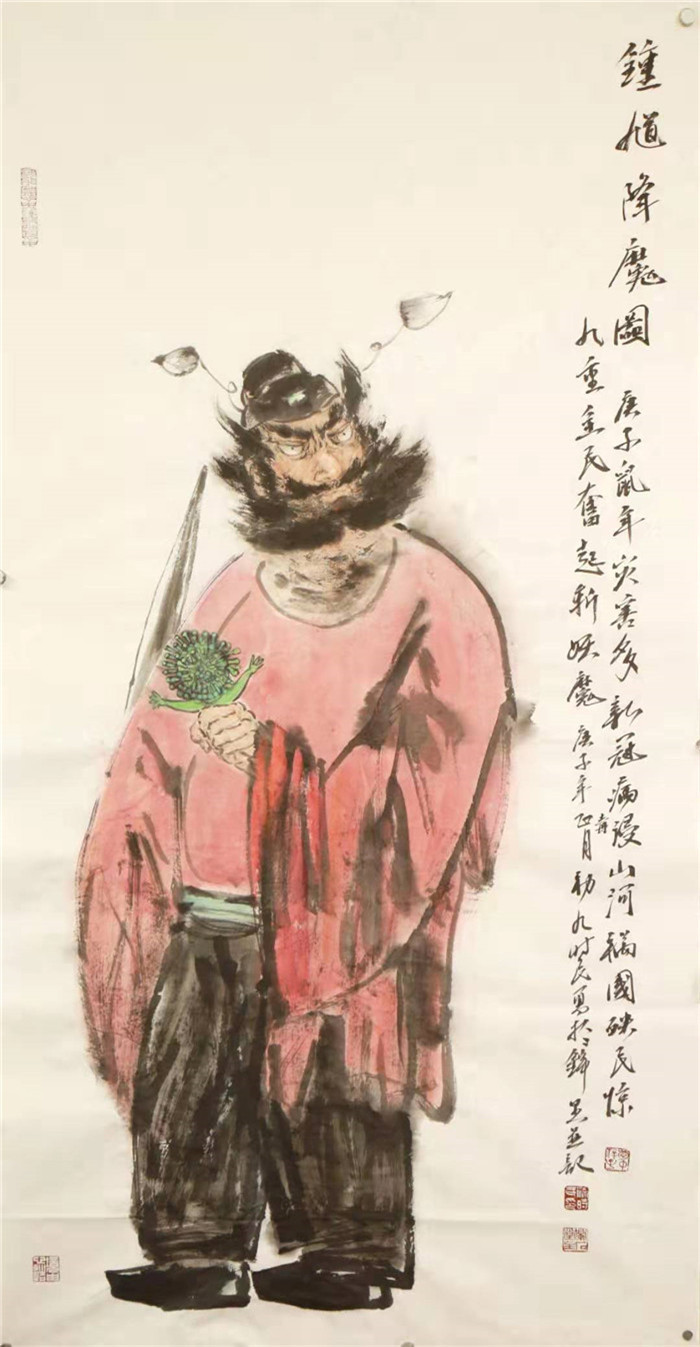 鍾馗降魔圖
庚子鼠年灾害多新冠病浸山河禍國殃民惊
九重全民奮起斬妖魔
庚子年正月初九时民写於